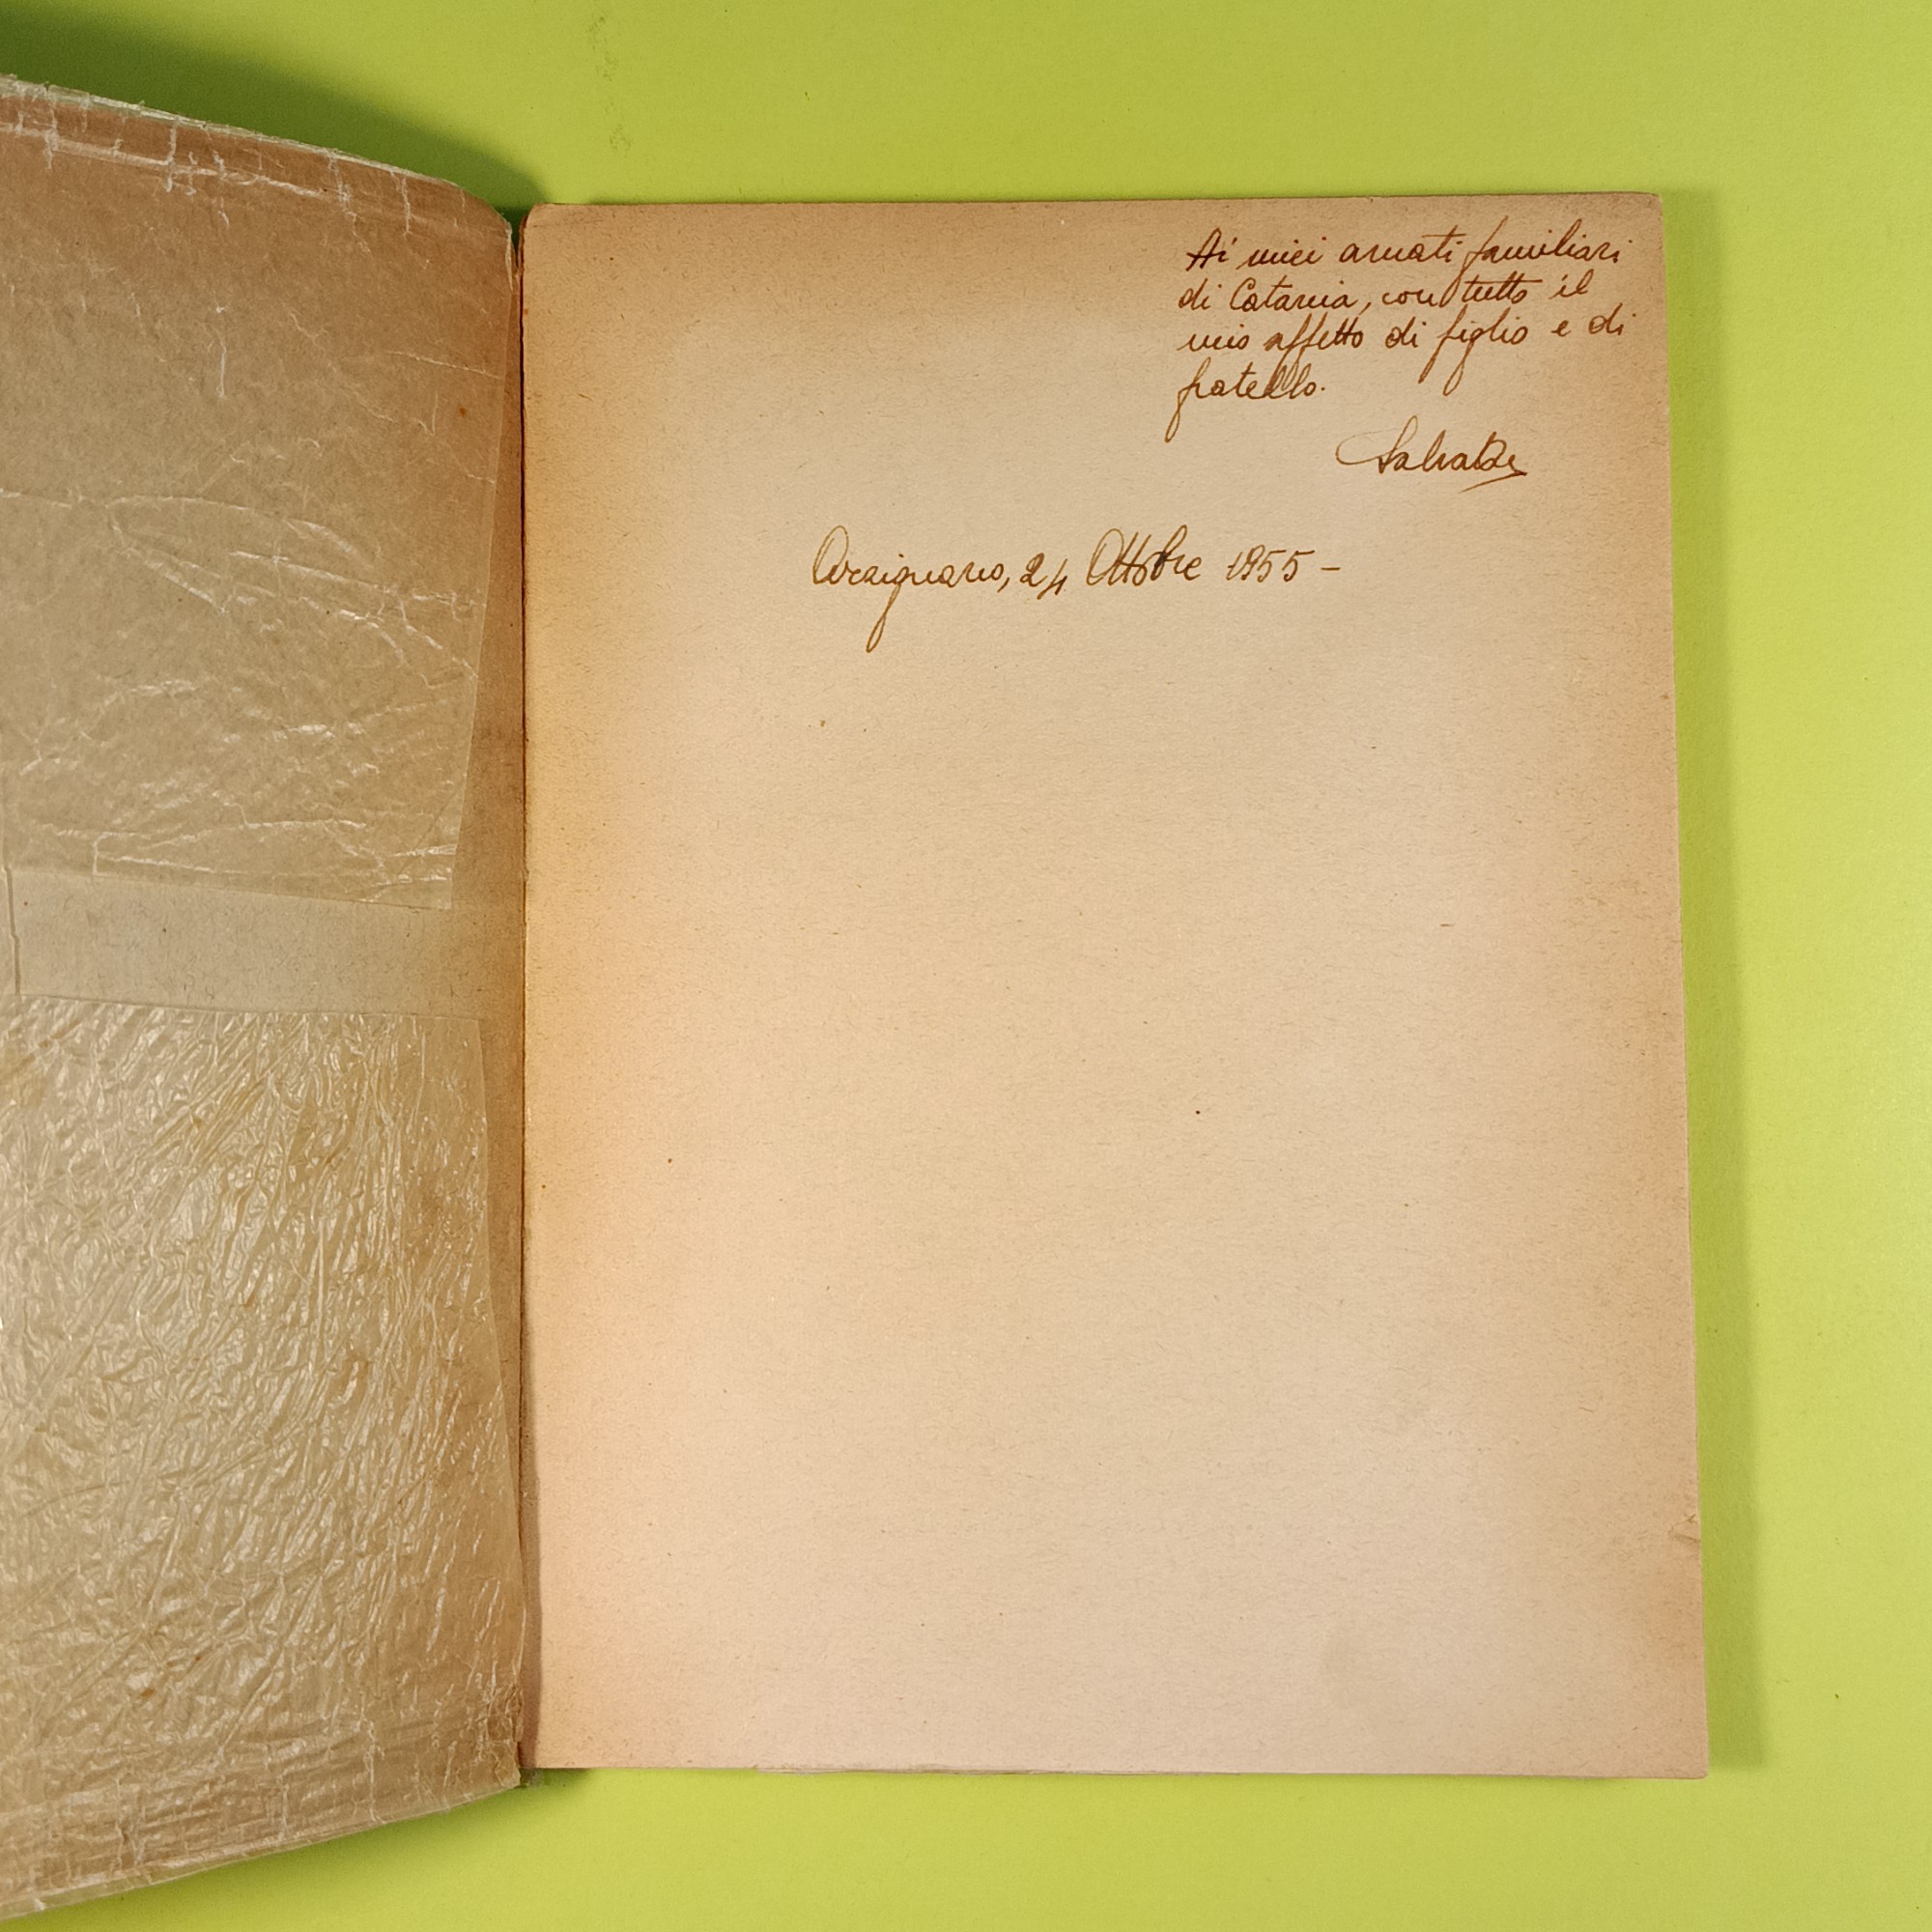 Ai miei amati familiari
di Catania, con tutto il
mio affetto di figlio e di
fratello.
Arzignano, 24 Ottobre 1955 -